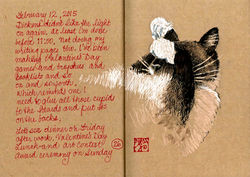 February 12, 2015
Dickens didn't like the light
on again, at least I've done
before 11:00. Not doing my
writing pages tho. I've been
making Valentine's Day
games and trophies and
booklists and so
on and so forth,
which reminds me I
need to glue all those cupids
to the boards and put
on the backs.
Let's see dinner on Friday
after work, Valentine's Day
Lunch and art contest
award ceremony on Sunday